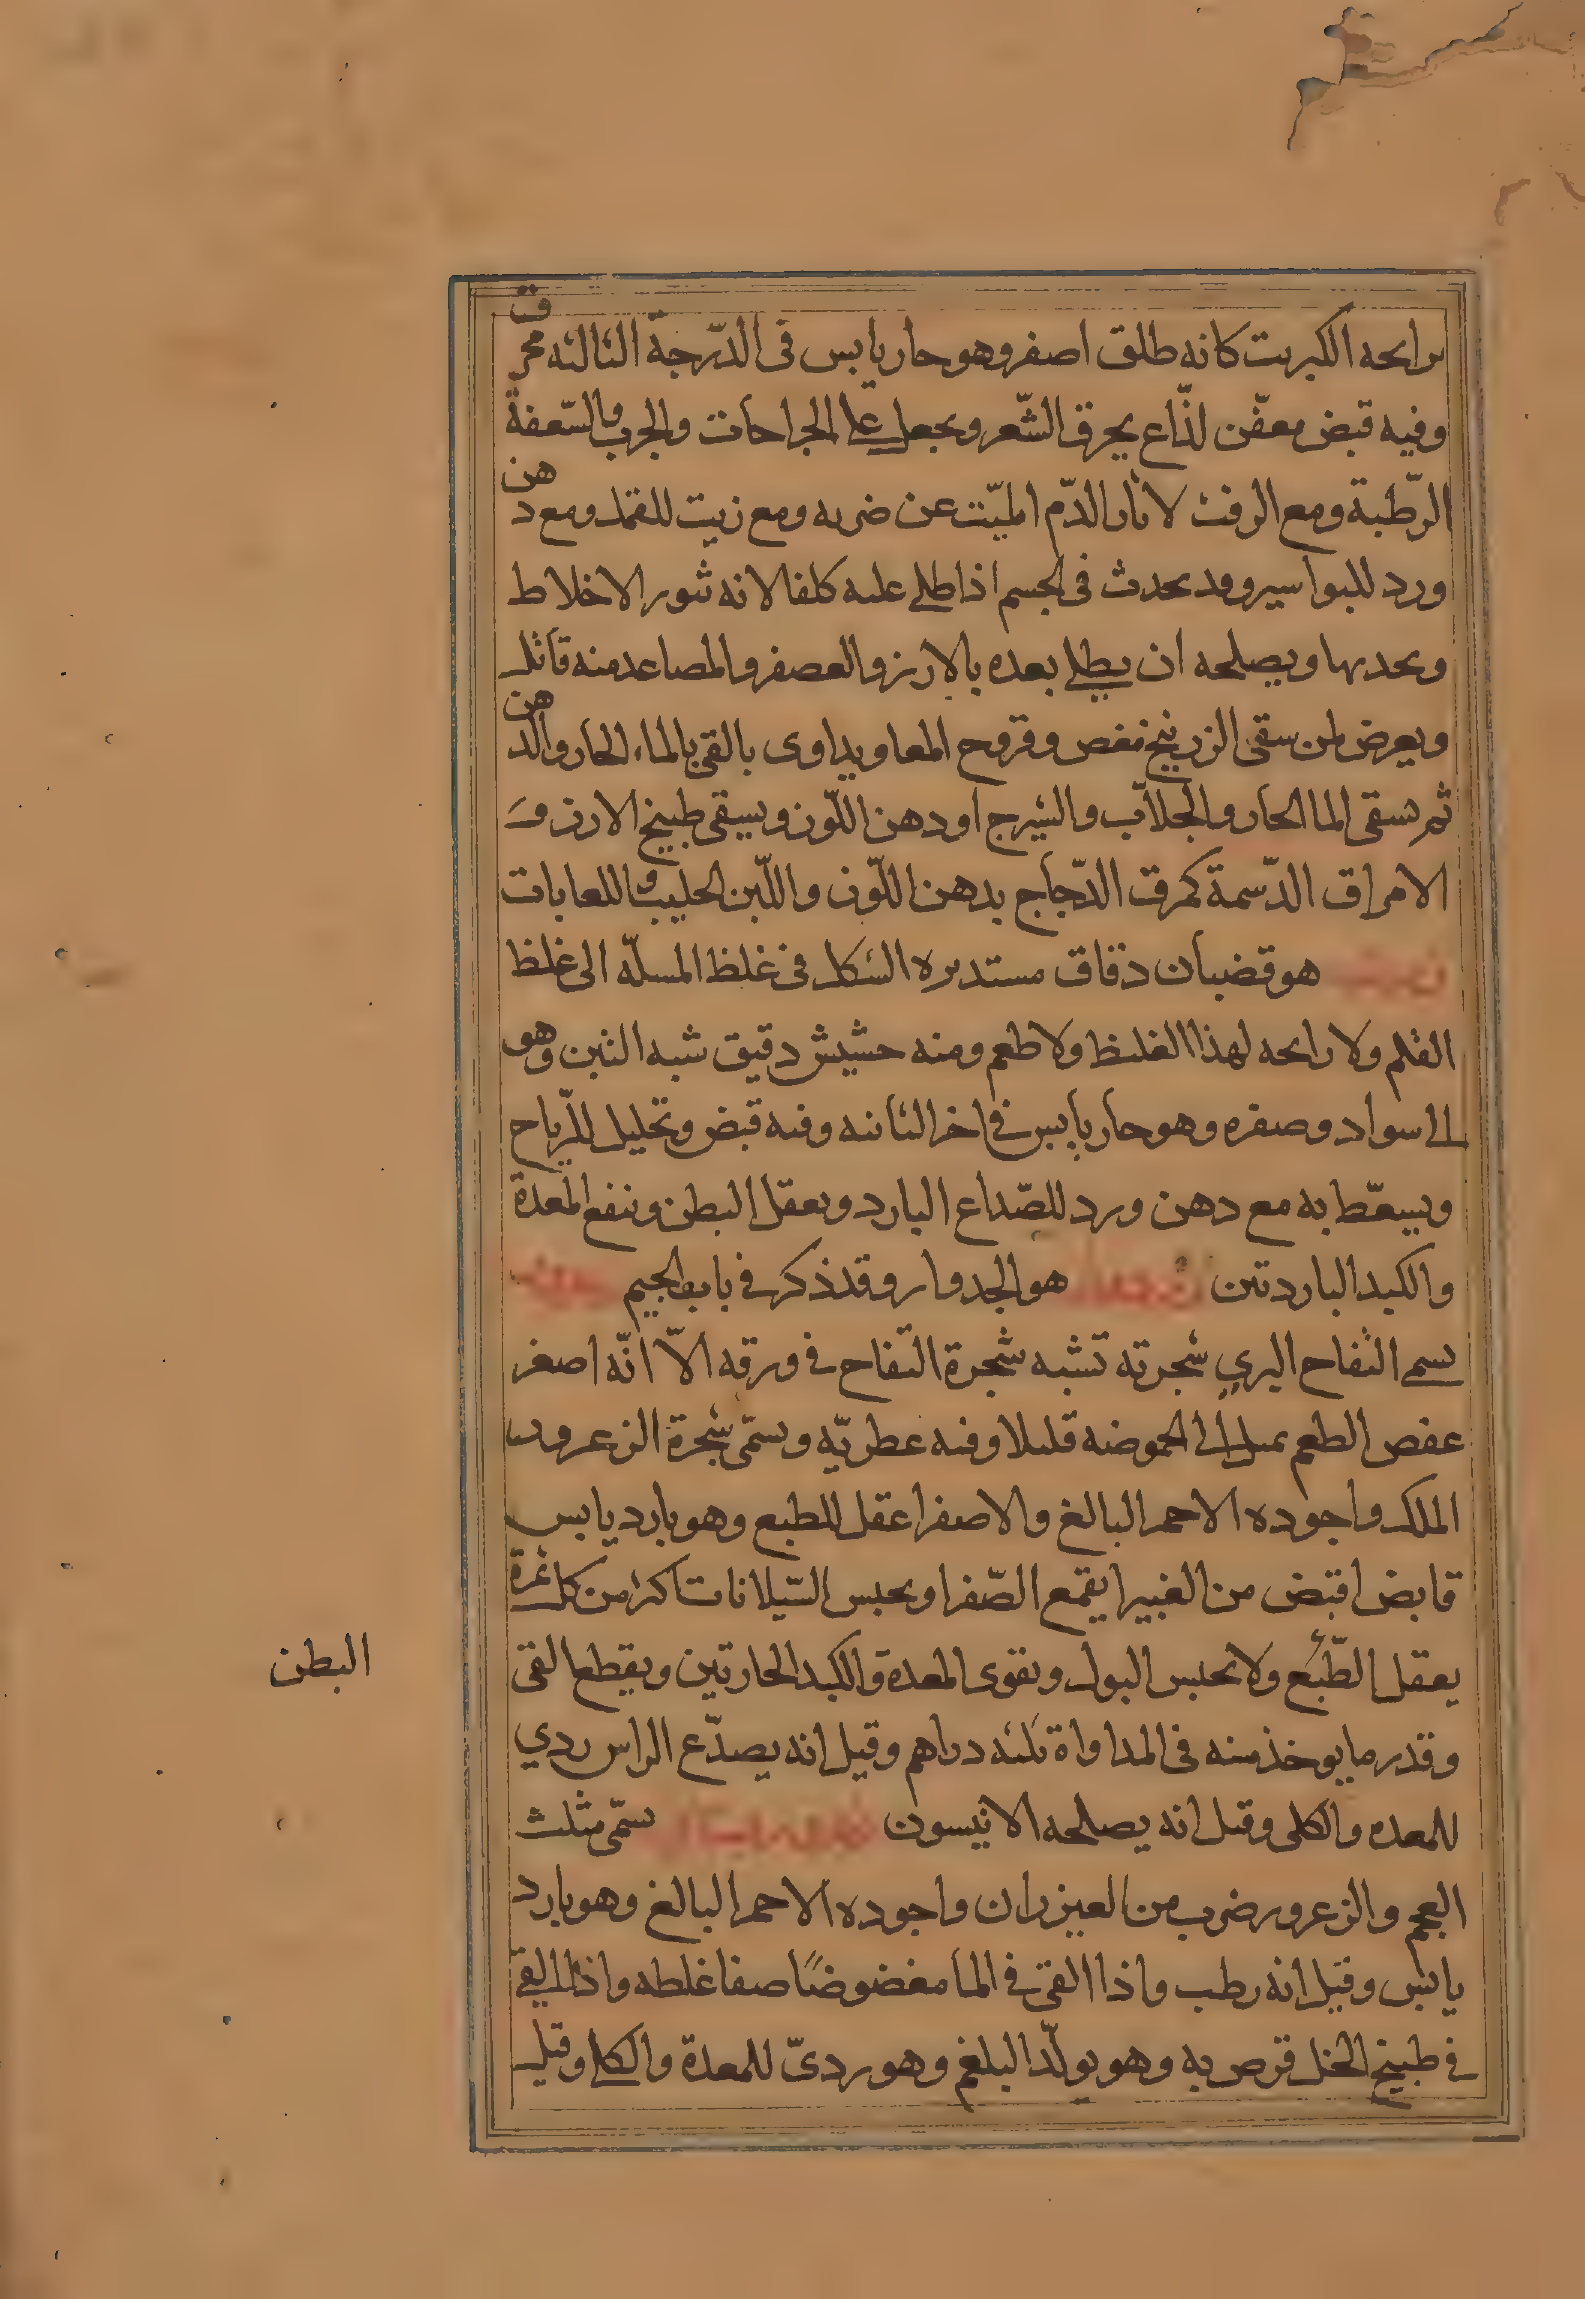 رايحه الكبريت كانه طلق اصفر وهو حار يابس في الدّرجة الثالثه محرق
وفيه قبض معفّن لذّاع يحرق الشّعر ويجعل على الجراحات والجرب والسّعفة
الرّطبة ومع الزفت لاثار الدّم الميّت عن ضربه ومع زيت للقمل ومع دهن
ورد للبواسير وقد يحدث في الجسم اذا طلي عليه كلفا لانه يثور الاخلاط
ويحدبها ويصلحه ان يطلى بعده بالارز والعصفر والمصاعد منه قاتل
ويعرض لمن سقى الزرنيخ مغص وقروح المعا ويداوى بالقى بالماء الحار والدهن
ثم يسقى الما الحار والجلاّب والشيرج او دهن اللّوز ويسقى طبيخ الارز و
الامراق الدّسمة كمرق الدّجاج بدهن اللّوز واللّبن الحليب واللعابات
هو قضبان دقاق مستديره الشكل في غلظ المسلّه الى غلظ
القلم ولا رايحه لهذا الغليظ ولا طعم ومنه حشيش دقيق شبه التبن وهو
الى سواد وصفره وهو حار يابس في اخر الثانيه وفيه قبض وتحليل للرّياح
ويسعّط به مع دهن ورد للصّداع البارد ويعقل البطن وينفع المعدة
والكبد الباردتين هو الجدوار وقد ذكر في باب الجيم
يسمى التفاح البري شجرته تشبه شجرة التفاح في ورقه الاّ انّه اصغر
عفص الطعم يميل الى الحموضه قليلا وفيه عطريّه ويسمّى شجرة الزعرور
الملك واجوده الاحمر البالغ والاصفر اعقل للطبع وهو بارد يابس
قابض اقبض من الغبيرا يقمع الصّفرا ويحبس السّيلانات اكثر من كل ثمرة
يعقل الطّبع ولا يحبس البول ويقوى المعدة والكبد الحارتين ويقطع القى
وقدر ما يوخذ منه في المداواة ثلثه دراهم وقيل انه يصدّع الراس ردي
للمعده والكلى وقيل انه يصلحه الانيسون يسمّى مثلث
العجم والزعرور ضرب من العيزران واجوده الاحمر البالغ وهو بارد
يابس وقيل انه رطب واذا القى في الما مغضوضًا صفا غلطه واذا القي
في طبيخ الخل قرص به وهو يولّد البلغم وهو ردىّ للمعدة والكلى وقيل
البطن